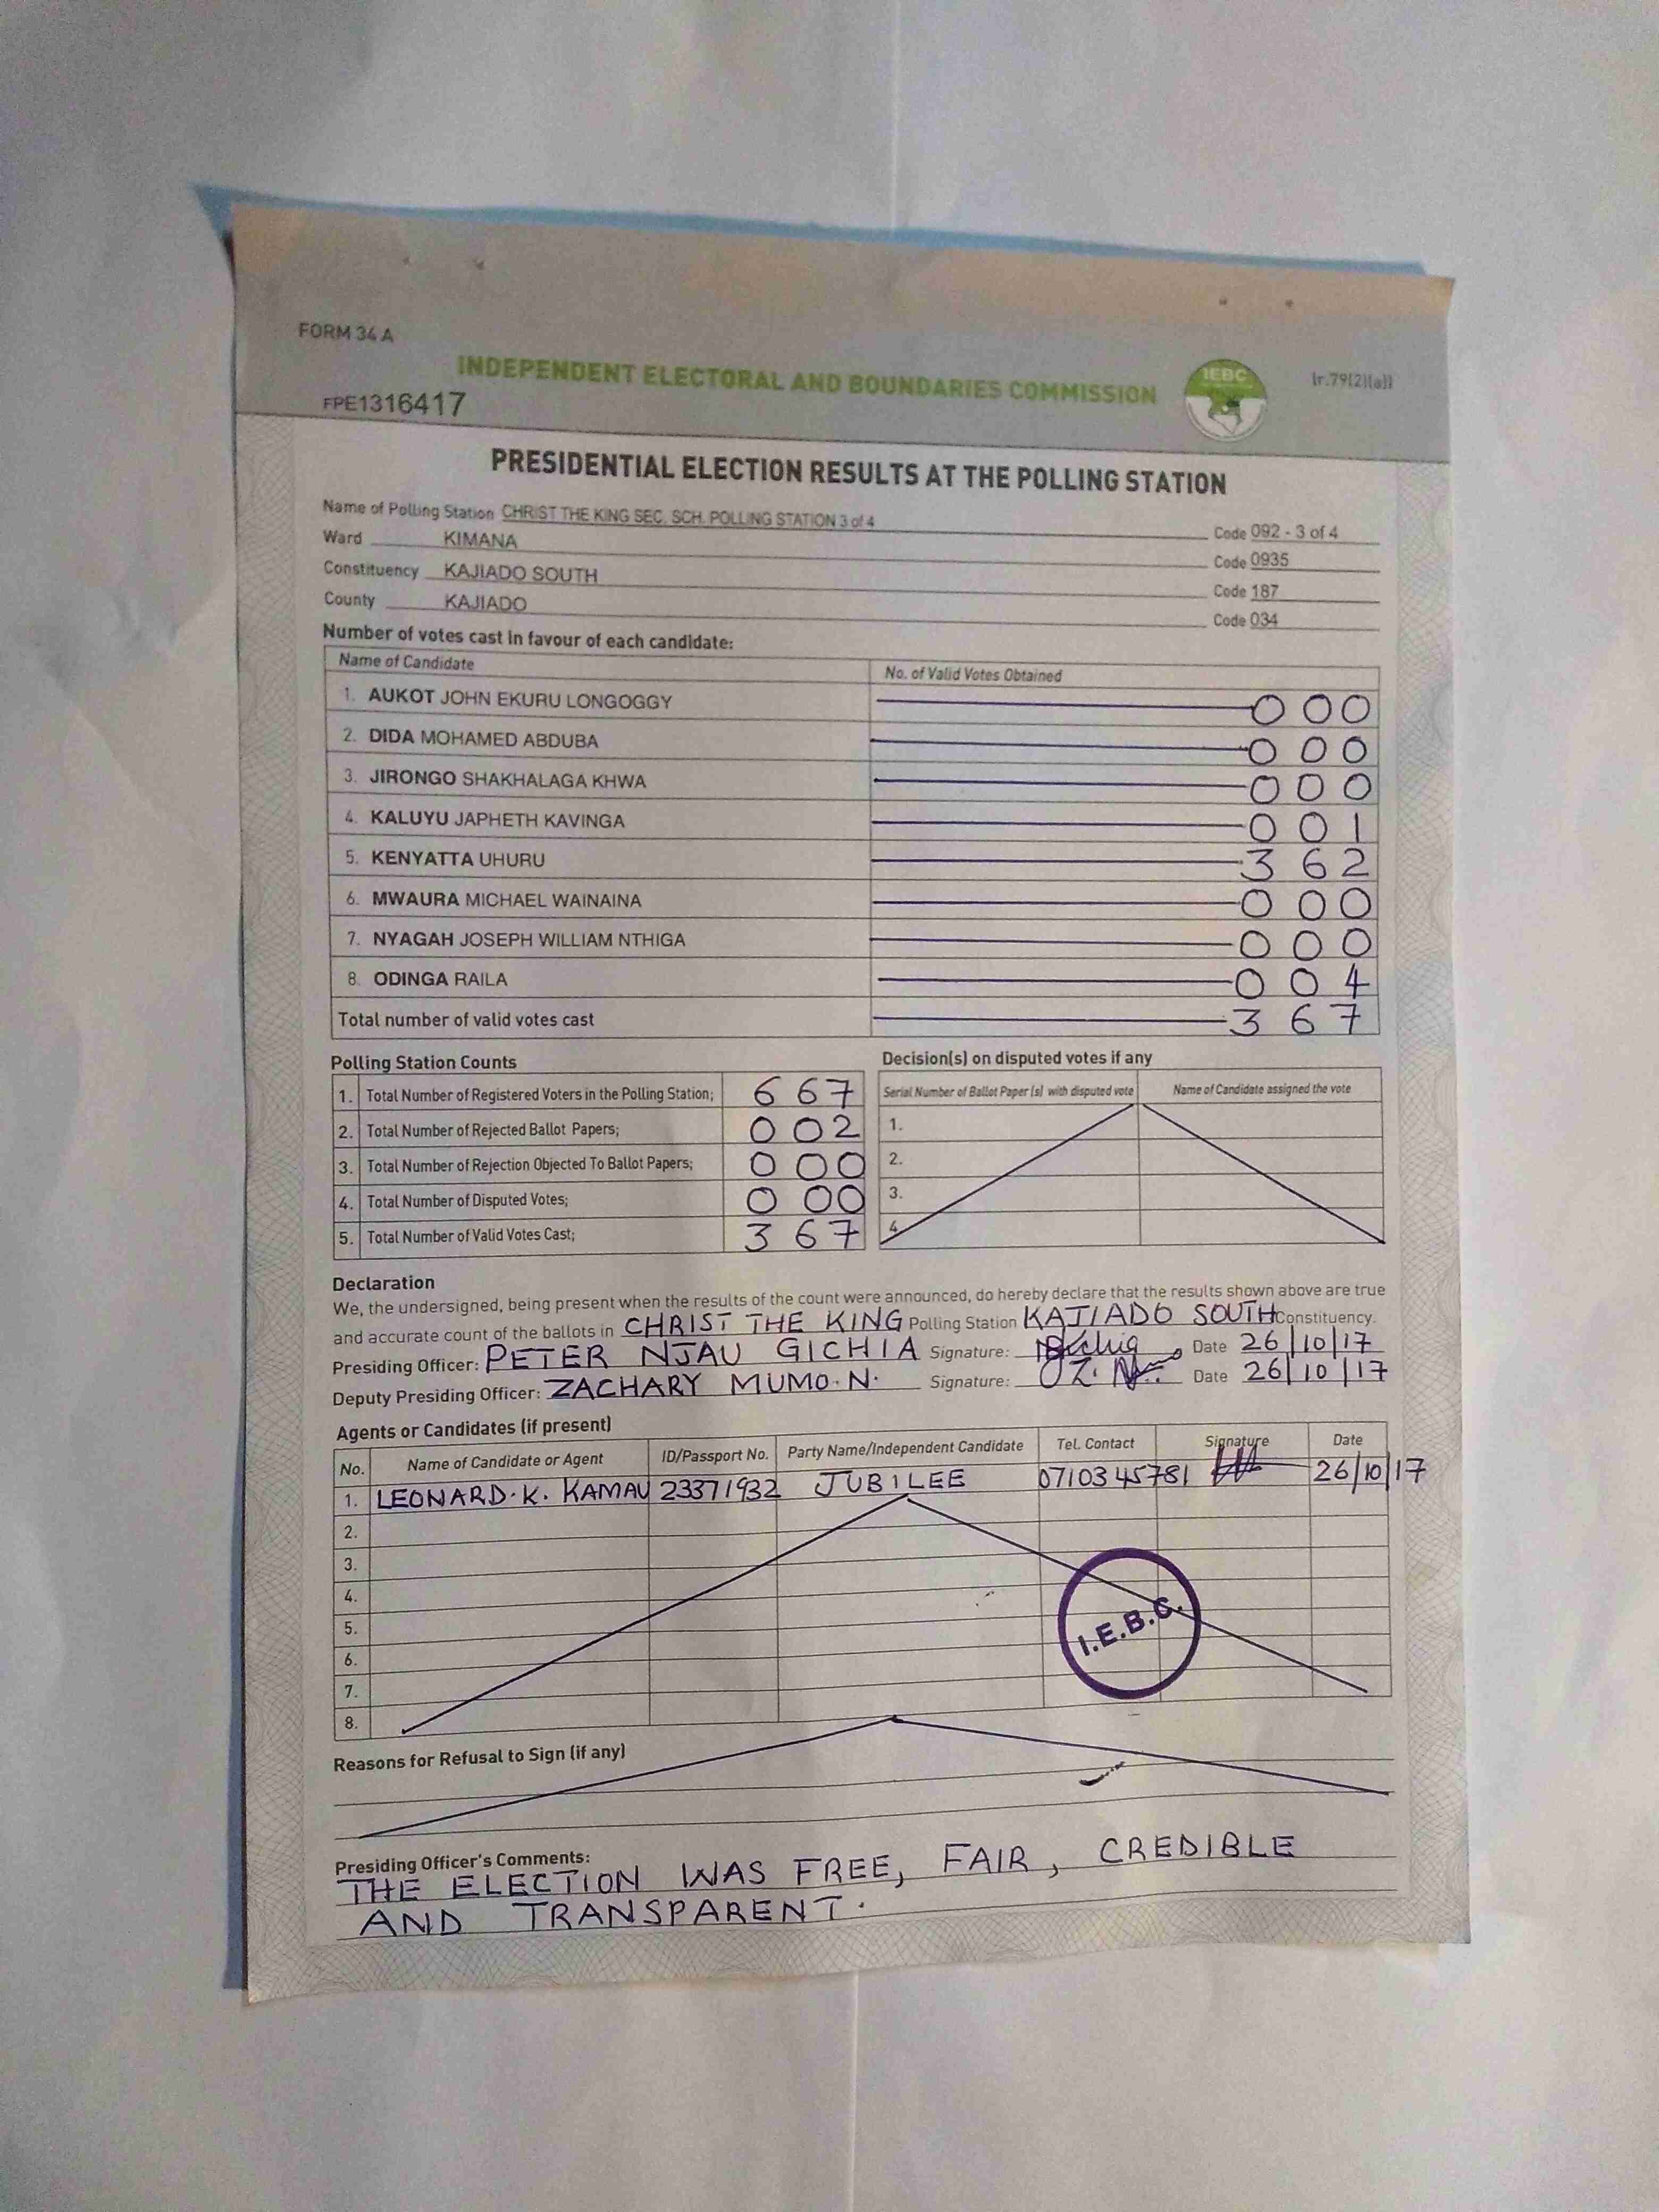 FORM 34 A
INDEPENDENT ELECTORAL AND BOUNDARIES COMMISSION
IEBC
(r.79(2)(a))
FPE1316417
PRESIDENTIAL ELECTION RESULTS AT THE POLLING STATION
Name of Polling Station CHRIST THE KING SEC. SCH. POLLING STATION 3 of 4 Code 092 - 3 of 4
Ward KIMANA Code 0935
Constituency KAJIADO SOUTH Code 187
County KAJIADO Code 034
Number of votes cast in favour of each candidate:
Name of Candidate No. of Valid Votes Obtained
1. AUKOT JOHN EKURU LONGOGGY 000
2. DIDA MOHAMED ABDUBA 000
3. JIRONGO SHAKHALAGA KHWA 000
4. KALUYU JAPHETH KAVINGA 001
5. KENYATTA UHURU 362
6. MWAURA MICHAEL WAINAINA 000
7. NYAGAH JOSEPH WILLIAM NTHIGA 000
8. ODINGA RAILA 004
Total number of valid votes cast 367
Polling Station Counts
1. Total Number of Registered Voters in the Polling Station; 667
2. Total Number of Rejected Ballot Papers; 002
3. Total Number of Rejection Objected To Ballot Papers; 000
4. Total Number of Disputed Votes; 000
5. Total Number of Valid Votes Cast; 367
Decision(s) on disputed votes if any
Serial Number of Ballot Paper (s) with disputed vote Name of Candidate assigned the vote
1.
2.
3.
4.
Declaration
We, the undersigned, being present when the results of the count were announced, do hereby declare that the results shown above are true
and accurate count of the ballots in CHRIST THE KING Polling Station KAJIADO SOUTH Constituency.
Presiding Officer: PETER NJAU GICHIA Signature: Date 26/10/17
Deputy Presiding Officer: ZACHARY MUMO. N. Signature: Date 26/10/17
Agents or Candidates (if present)
No. Name of Candidate or Agent ID/Passport No. Party Name/Independent Candidate Tel. Contact Signature Date
1. LEONARD. K. KAMAU 23371932 JUBILEE 0710345781 26/10/17
2.
3.
4.
5.
6.
7.
8.
I.E.B.C.
Reasons for Refusal to Sign (if any)
Presiding Officer's Comments:
THE ELECTION WAS FREE, FAIR, CREDIBLE
AND TRANSPARENT.